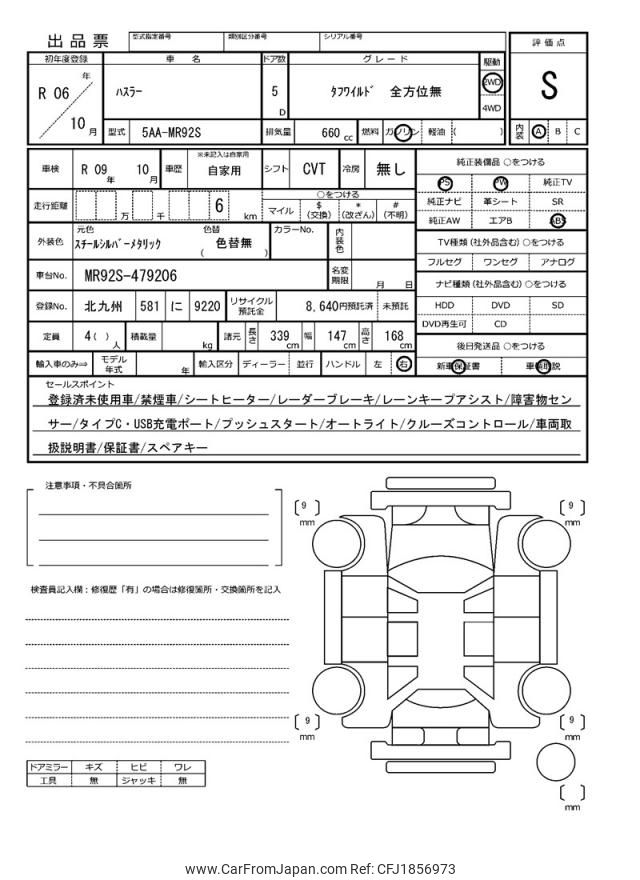 出品票
型式指定番号 類別区分番号 シリアル番号
初年度登録 車名 ドア数 グレード 駆動 評価点
R 06 年 10 月
ハスラー
5 D
タフワイルド 全方位無
2WD
4WD
S
型式 5AA-MR92S 排気量 660 cc 燃料 ガソリン 軽油 ( ) 内装 A B C
車検 R 09 年 10 月 車歴 ※未記入は自家用 自家用 シフト CVT 冷房 無し
純正装備品 ○をつける
PS PW 純正TV
純正ナビ 革シート SR
純正AW エアB ABS
走行距離 万 千 6 km
○をつける
マイル $ (交換) * (改ざん) # (不明)
外装色 元色 スチールシルバーメタリック 色替 ( 色替無 ) カラーNo. 内装色
TV種類 (社外品含む) ○をつける
フルセグ ワンセグ アナログ
車台No. MR92S-479206 名変期限 月 日
ナビ種類 (社外品含む) ○をつける
HDD DVD SD
DVD再生可 CD
登録No. 北九州 581 に 9220 リサイクル預託金 8,640円預託済 未預託
定員 4 ( ) 人 積載量 kg 諸元 長さ 339 cm 幅 147 cm 高さ 168 cm
後日発送品 ○をつける
新車保証書 車輌取説
輸入車のみ⇒ モデル年式 年 輸入区分 ディーラー 並行 ハンドル 左 右
セールスポイント
登録済未使用車/禁煙車/シートヒーター/レーダーブレーキ/レーンキープアシスト/障害物セン
サー/タイプC・USB充電ポート/プッシュスタート/オートライト/クルーズコントロール/車両取
扱説明書/保証書/スペアキー
注意事項・不具合箇所
検査員記入欄：修復歴「有」の場合は修復箇所・交換箇所を記入
[ 9 ] mm
[ 9 ] mm
[ 9 ] mm
[ 9 ] mm
[ ] mm
ドアミラー キズ ヒビ ワレ
工具 無 ジャッキ 無
www.CarFromJapan.com Ref: CFJ1856973